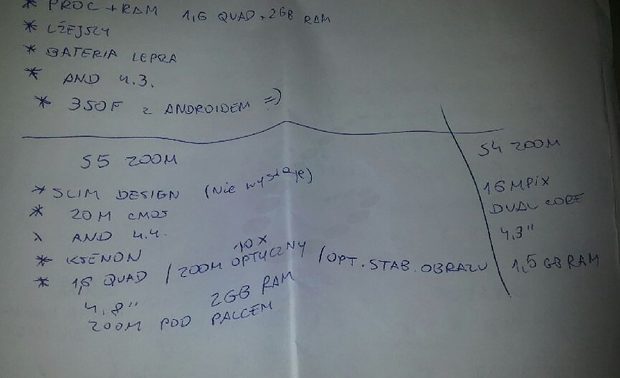 * PROC + RAM 1,6 QUAD + 2GB RAM
* LŻEJSZY
* BATERIA LEPRA
* AND 4.3.
* 350F z ANDROIDEM =)
S5 ZOOM
* SLIM DESIGN (Nie wystaje)
* 20M CMOS
* AND 4.4.
* KSENON
* 1,6 QUAD / ZOOM OPTYCZNY 10x / OPT. STAB. OBRAZU
4,8" 2GB RAM
ZOOM POD PALCEM
S4 ZOOM
16MPIX
DUAL CORE
4,3"
1,5 GB RAM